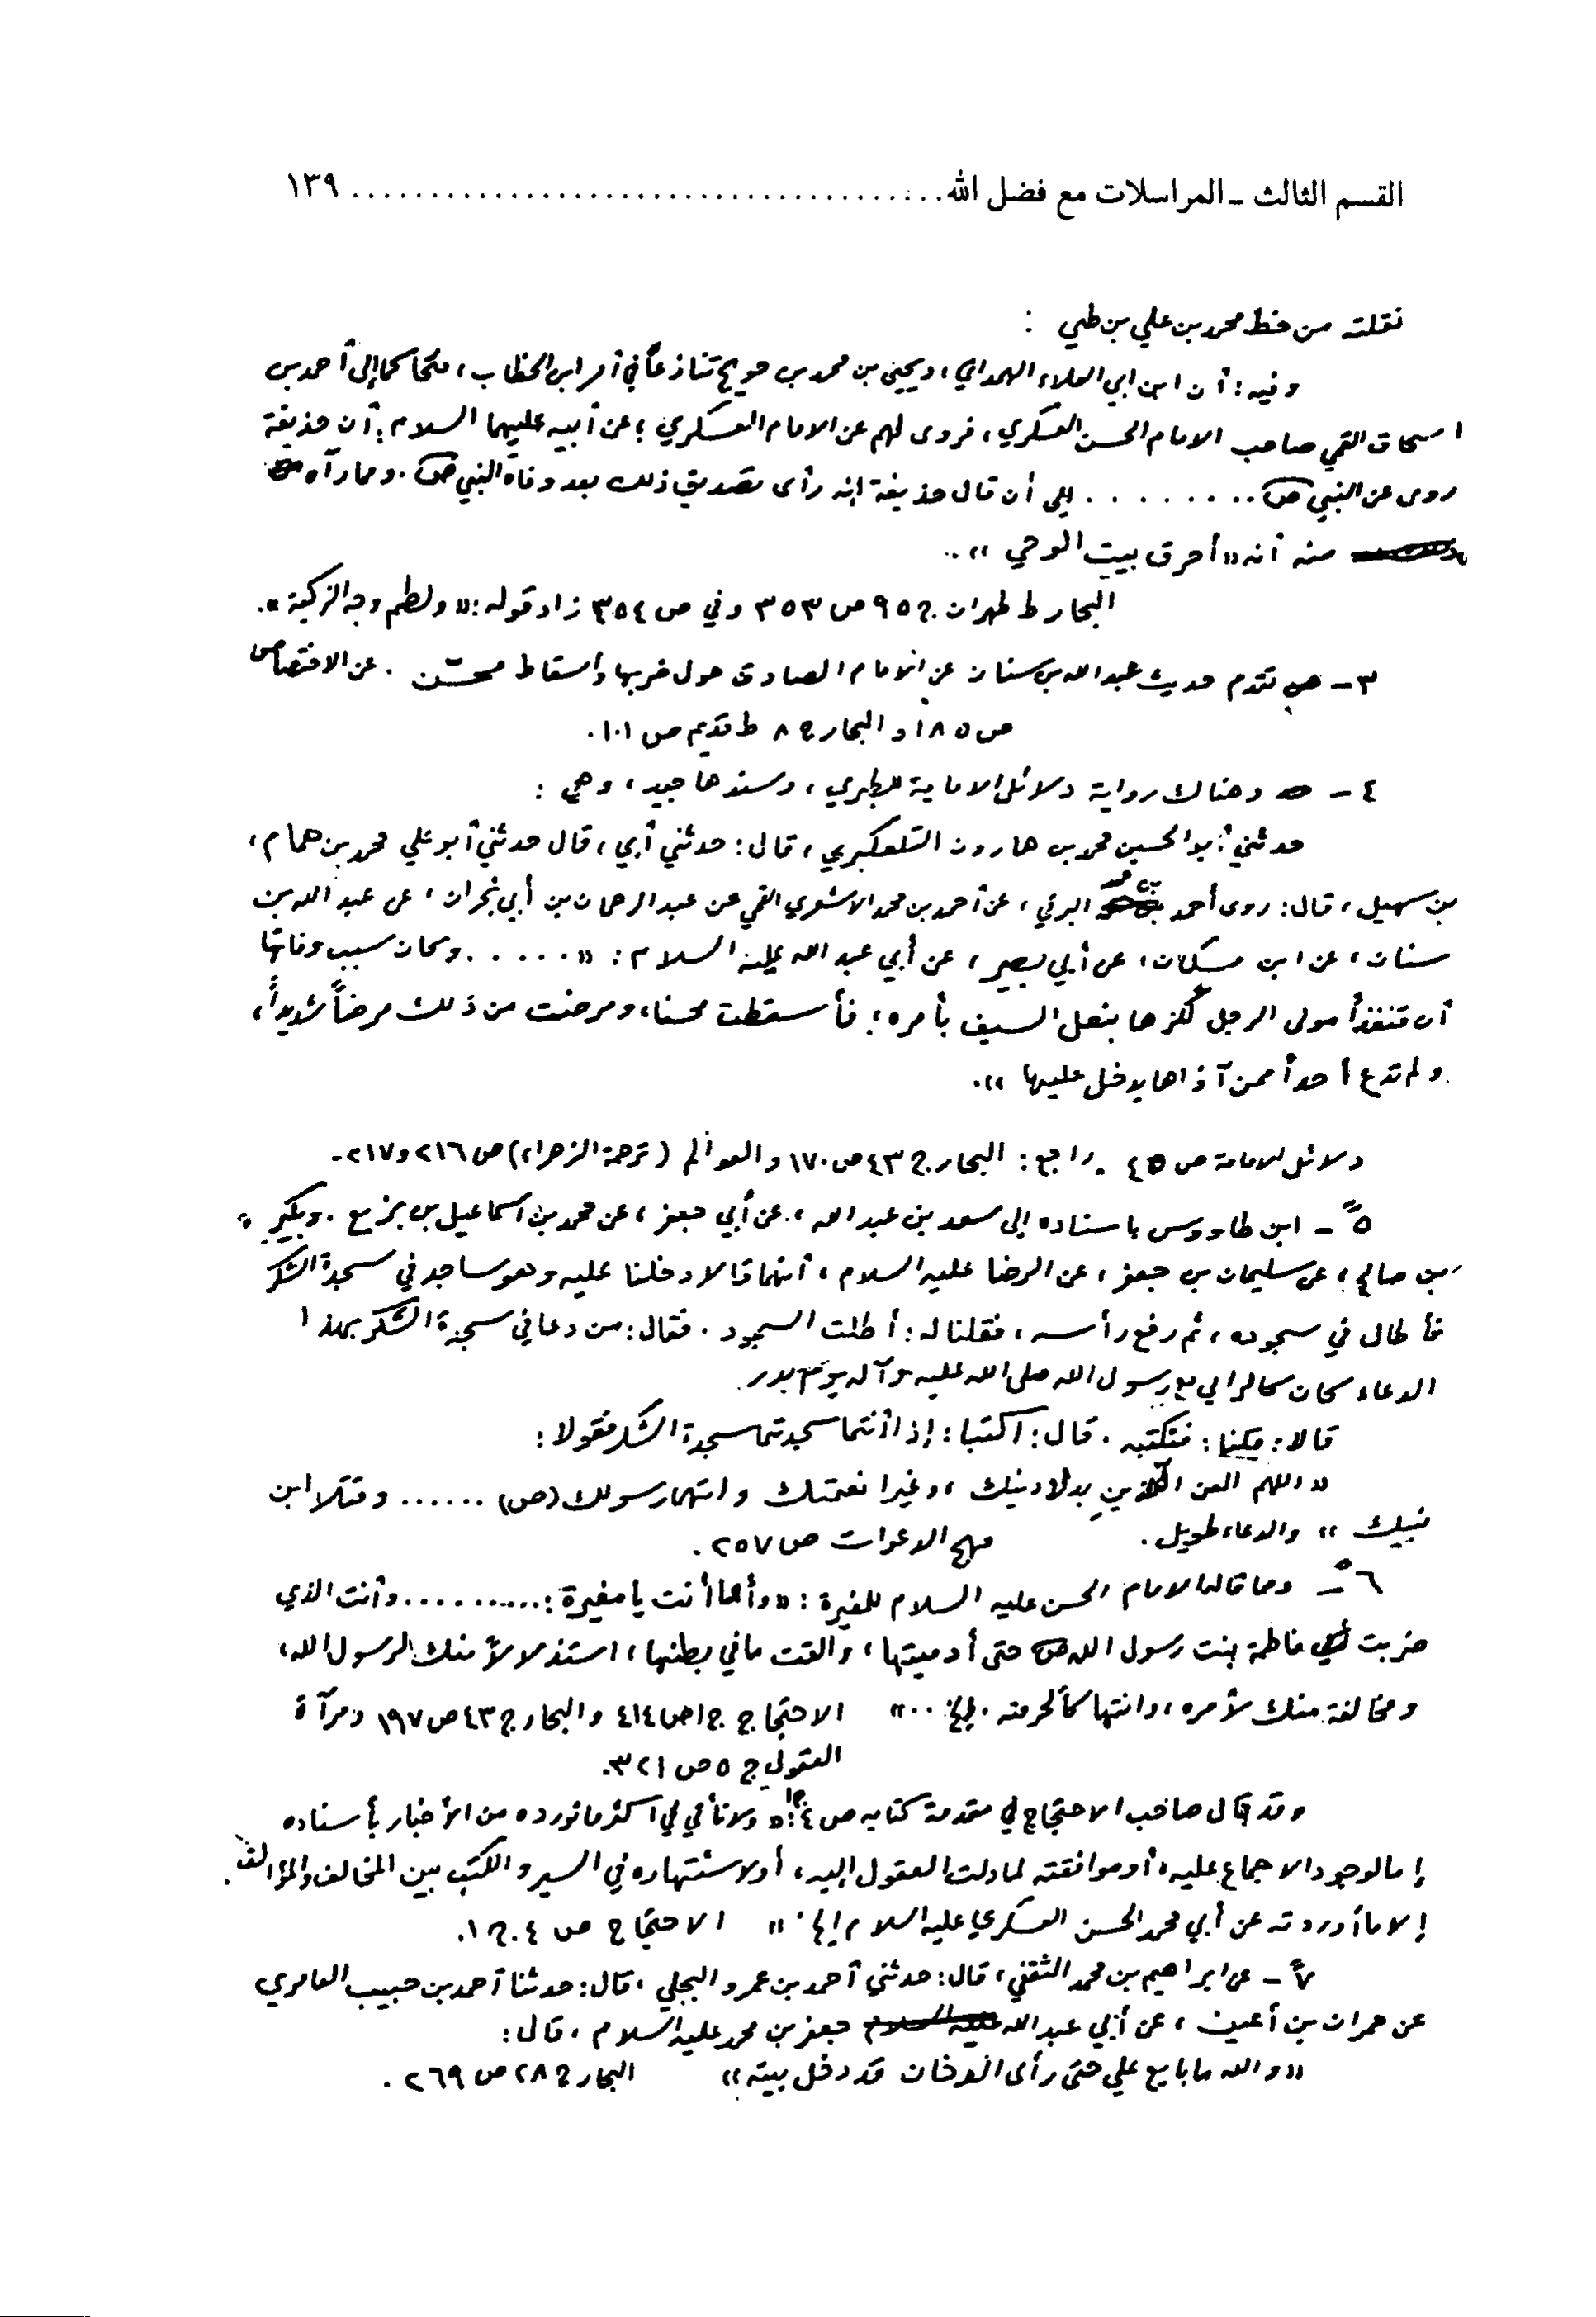 القسم الثالث ـ المراسلات مع فضل الله ........................................ ١٣٩
نقلته من خط محمد بن علي بن طي :
وفيه : أن ابن ابي العلاء الهمداني ، ويحيى بن محمد بن حويج تنازعا في أمر ابن الخطاب ، فتحاكما إلى أحمد بن
اسحاق القمي صاحب الامام الحسن العسكري ، فروى لهم عن الامام العسكري ؛ عن أبيه عليهما السلام : أن حذيفة
روى عن النبي ص .......... إلى أن قال حذيفة إنه رأى تصديق ذلك بعد وفاة النبي ص . ومما رآه
منه أنه « أحرق بيت الوحي » ..
البحار ط طهران ج ٩٥ ص ٣٥٣ وفي ص ٣٥٤ زاد قوله : « ولطم وجه الزكية » .
٣ - تقدم حديث عبد الله بن سنان عن الامام الصادق حول ضربها وإسقاط محسّن . عن الاختصاص
ص ١٨٥ و البحار ج ٨ ط قديم ص ١٠١ .
٤ - وهناك رواية دلائل الامامة للطبري ، وسندها جيد ، وهي :
حدثني أبو الحسين محمد بن هارون التلعكبري ، قال : حدثني أبي ، قال حدثني أبو علي محمد بن همام ،
بن سهيل ، قال : روى أحمد بن محمد البرقي ، عن أحمد بن محمد الاشعري القمي عن عبد الرحمان بن أبي نجران ، عن عبد الله بن
سنان ، عن ابن مسكان ، عن أبي بصير ، عن أبي عبد الله عليه السلام : « ...... وكان سبب وفاتها
أن قنفذاً مولى الرجل لكزها بنعل السيف بأمره ؛ فأسقطت محسنا ، ومرضت من ذلك مرضاً شديداً ،
ولم تدع أحداً ممن آذاها يدخل عليها » .
دلائل الامامة ص ٤٥ . راجع : البحار ج ٤٣ ص ١٧٠ و العوالم ( ترجمة الزهراء ) ص ٢١٦ و ٢١٧ -
٥ - ابن طاووس باسناده إلى سعد بن عبد الله ، عن أبي جعفر ، عن محمد بن اسماعيل بن بزيع . وبكير ،
بن صالح ، عن سليمان بن جعفر ، عن الرضا عليه السلام ، أنهما قالا دخلنا عليه وهو ساجد في سجدة الشكر
فأطال في سجوده ، ثم رفع رأسه ، فقلنا له : أطلت السجود . فقال : من دعا في سجدة الشكر بهذا
الدعاء كان كالرامي مع رسول الله صلى الله عليه وآله يوم بدر
قالا : قلنا : فنكتبه . قال : اكتبا : إذا أنتما سجدتما سجدة الشكر فقولا :
« اللهم العن اللذين بدلا دينك ، وغيرا نعمتك واتهما رسولك ( ص ) ...... وقتلا ابن
نبيك » والدعاء طويل . مهج الدعوات ص ٢٥٧ .
٦ - ومما قاله الامام الحسن عليه السلام للمغيرة : « وأما أنت يا مغيرة : .......... وأنت الذي
ضربت فاطمة بنت رسول الله ص حتى أدميتها ، والقت ما في بطنها ، استذلالاً منك لرسول الله ،
ومخالفة منك لأمره ، وانتهاكاً لحرمته . إلخ .. » الاحتجاج ج ١ ص ٤١٤ والبحار ج ٤٣ ص ١٩٧ ومرآة
العقول ج ٥ ص ٣٢١ .
وقد قال صاحب الاحتجاج في مقدمة كتابه ص ٤ ج ١ : « ولا نأتي في أكثر ما نورده من الأخبار بأسناده
إما لوجود الاجماع عليه ، أو موافقته لما دلت العقول إليه ، أو لاشتهاره في السير والكتب بين المخالف والمؤالف .
إلا ما أوردته عن أبي محمد الحسن العسكري عليه السلام إلخ . » الاحتجاج ص ٤ ج ١ .
٧ - عن ابراهيم بن محمد الثقفي ، قال : حدثني أحمد بن عمرو البجلي ، قال : حدثنا أحمد بن حبيب العامري
عن حمران بن أعين ، عن أبي عبد الله جعفر بن محمد عليه السلام ، قال :
« والله ما بايع علي حتى رأى الدخان قد دخل بيته » البحار ج ٢٨ ص ٢٦٩ .